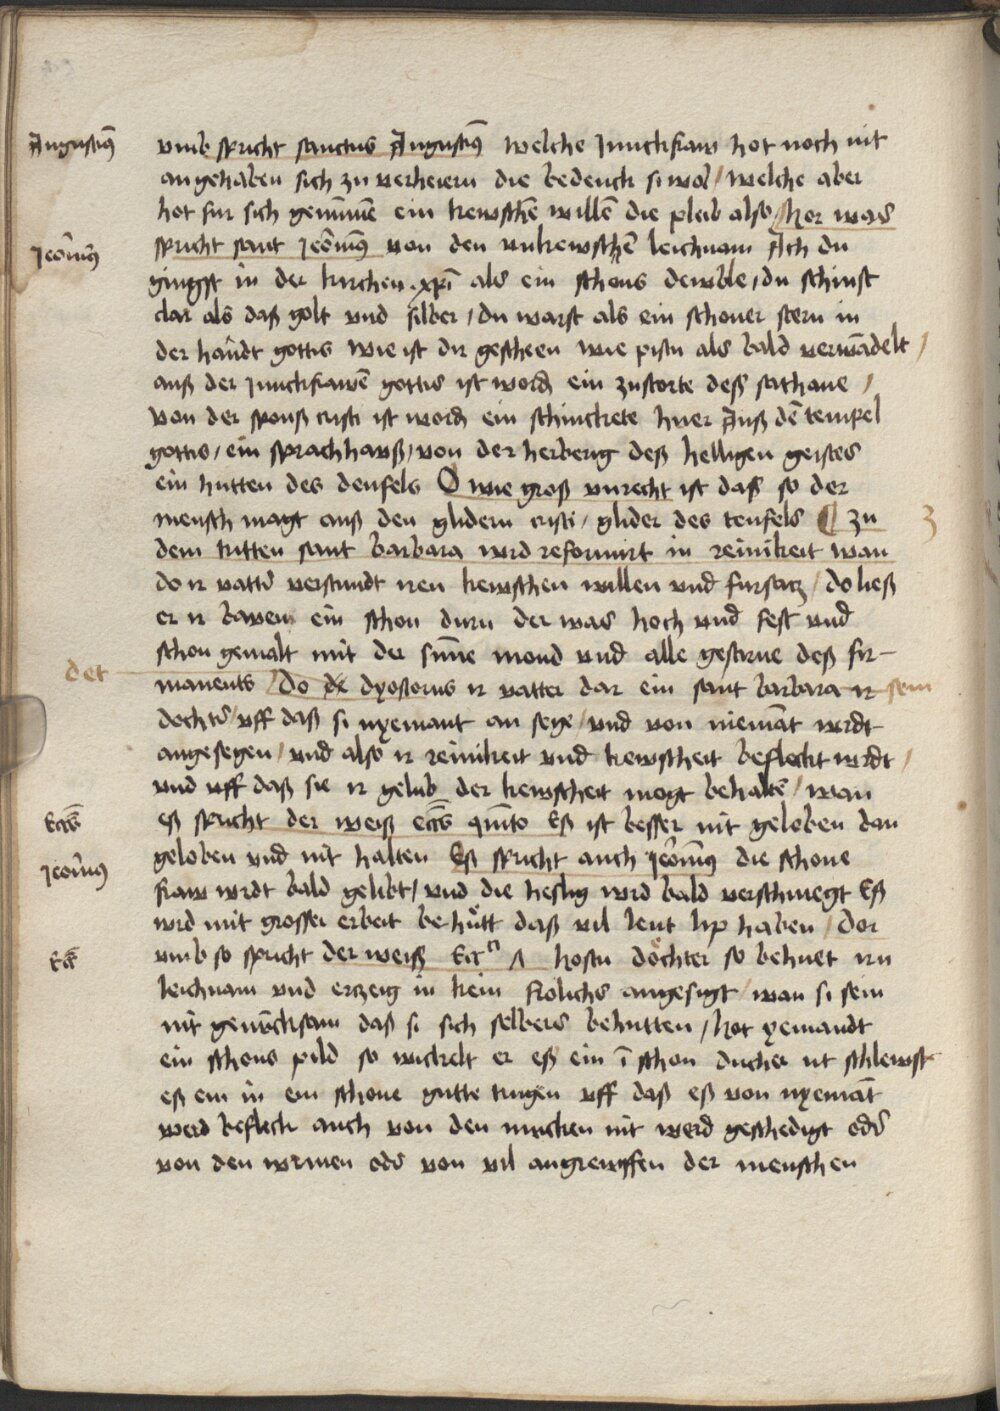 Augustinꝰ
vmb spricht sanctus Augustinꝰ welche Junckfraw hot noch nit
angehaben sich zu verheiern die bedenck si wol / welche aber
hot fur sich genūmē ein kewschē willē die pleib also / Hor was
Jeronimꝰ
spricht sant Jeronimꝰ von den vnkewschē leichnam Ach du
gingst in der kirchen xpi als ein schons dewble / du schinst
clar als daß golt vnd silber / du warst als ein schoner stern in
der handt gottis wie ist dir gescheen wie pistu als bald verwādelt /
auß der Junckfrawē gottis ist word ein zustorte deß sathane /
von der sponß cristi ist word ein schinckete huer Auß dē tempel
gottis / ein sprachhawß / von der herberig deß helligen geistes
ein hutten des deufels O wie groß vnrecht ist daß so der
mensch magt auß den glidern cristi / glider des teufels ¶ zu
3
dem tritten sant barbara wird reformirt in reinikeit wan
do ir vatter verstundt iren kewschen willen vnd fursatz / do ließ
er ir bawen ein schon durn der was hoch vnd fest vnd
schon gemalt mit der sunne mond vnd alle gestirne deß fir-
det
manents / Do dyoscorus ir vatter dar ein sant barbara ir sein
dochter / vff daß si nyemant an sege / vnd von niemāt wirdt
angesegen / vnd also ir reinikeit vnd kewscheit befleckt wirdt /
vnd vff daß sie ir gelub der kewscheit mogt behaltē / wan
Eccs
eß spricht der weiß eccs quinto Eß ist besser nit geloben dan
geloben vnd nit halten Eß spricht auch Jeronimꝰ die schone
Jeronimꝰ
fraw wirdt bald gelibt / vnd die heslig wird bald verschmegt Eß
wird mit grosser erbeit behutt daß vil leut lip haben / Dor
Ecc
vmb so spricht der weiß Ecc 7 hostu dochter so behuet irn
leichnam vnd erzeig in kein frolichs angesigt / wan si sein
nit genucksam daß si sich selbers behutten / Hot yemandt
ein schons pild so wickelt er eß ein ī schon ducher it schlewst
eß ein in ein schone gutte trugen vff daß eß von nyemāt
werd befleckt auch von den mucken nit werd geschedigt oder
von den wurmen oder von vil angreiffen der menschen